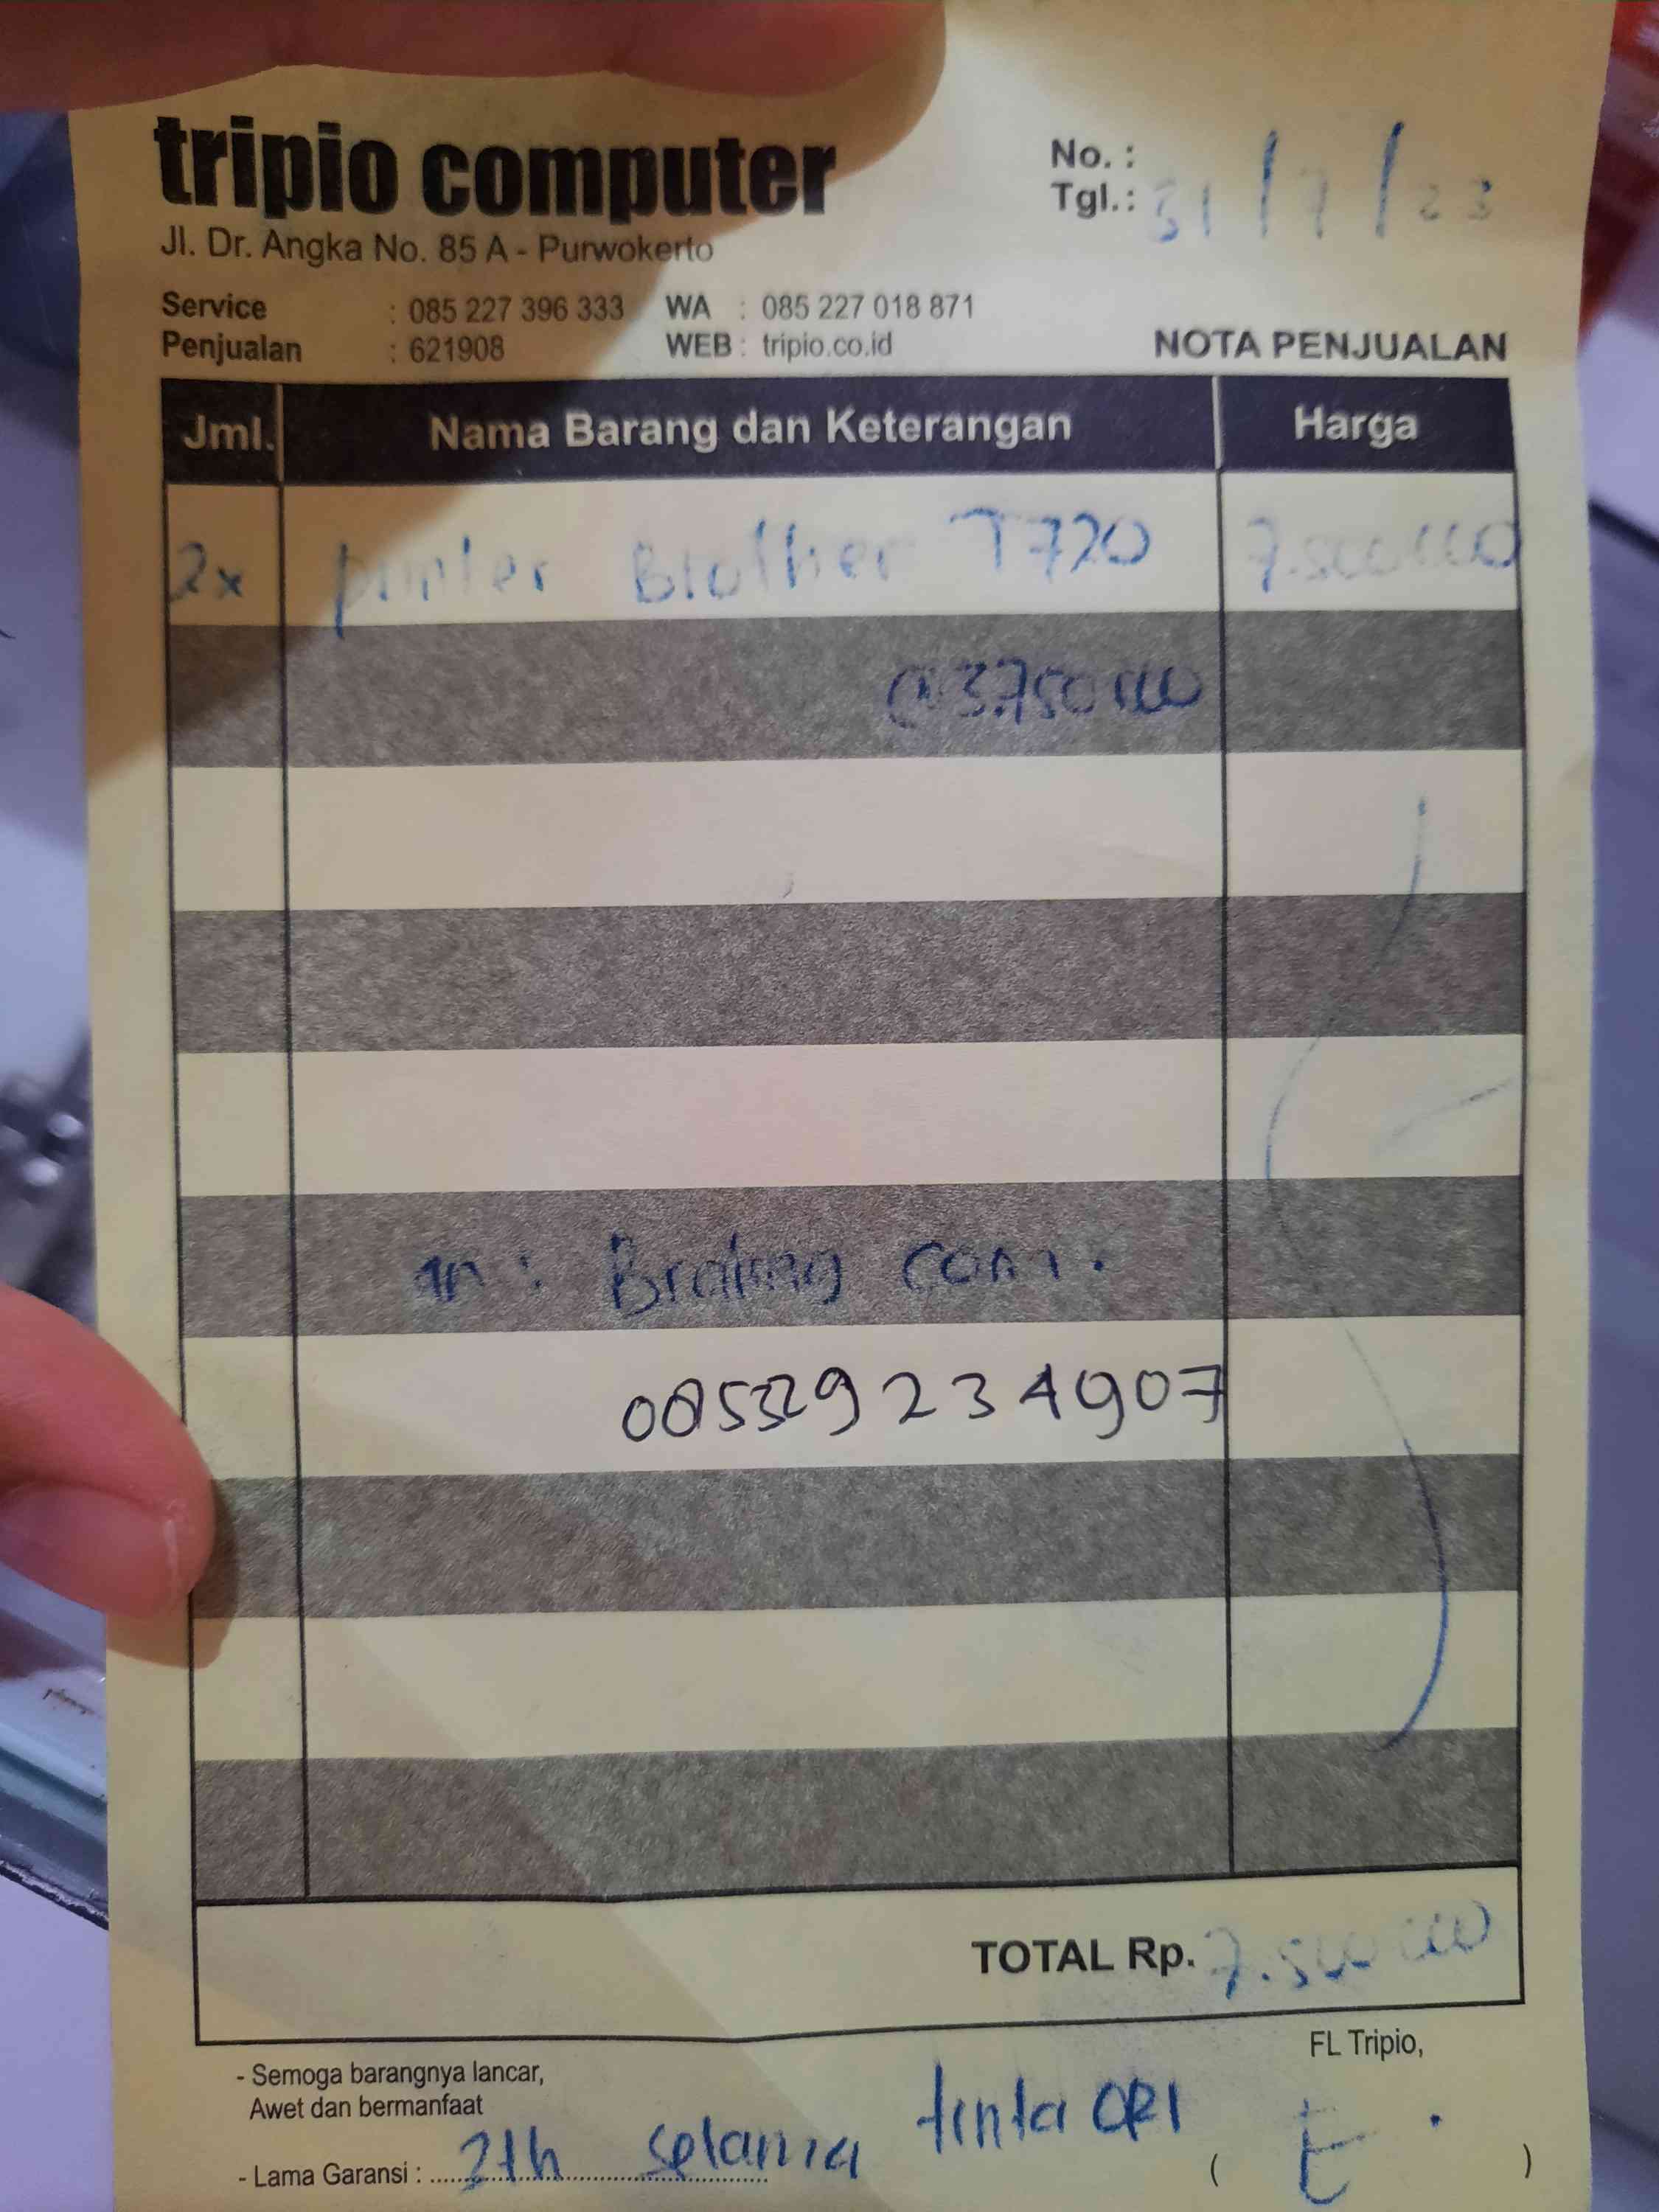 tripio computer
No. :
Tgl.: 31/7/23
Jl. Dr. Angka No. 85 A - Purwokerto
Service : 085 227 396 333 WA : 085 227 018 871
Penjualan : 621908 WEB : tripio.co.id
NOTA PENJUALAN
Jml. Nama Barang dan Keterangan Harga
2x printer Brother T720 7.500.000
@ 3.750.000
an : com.
TOTAL Rp. 7.500.000
- Semoga barangnya lancar,
Awet dan bermanfaat
FL Tripio,
- Lama Garansi : 2th selama tinta ORI
( )